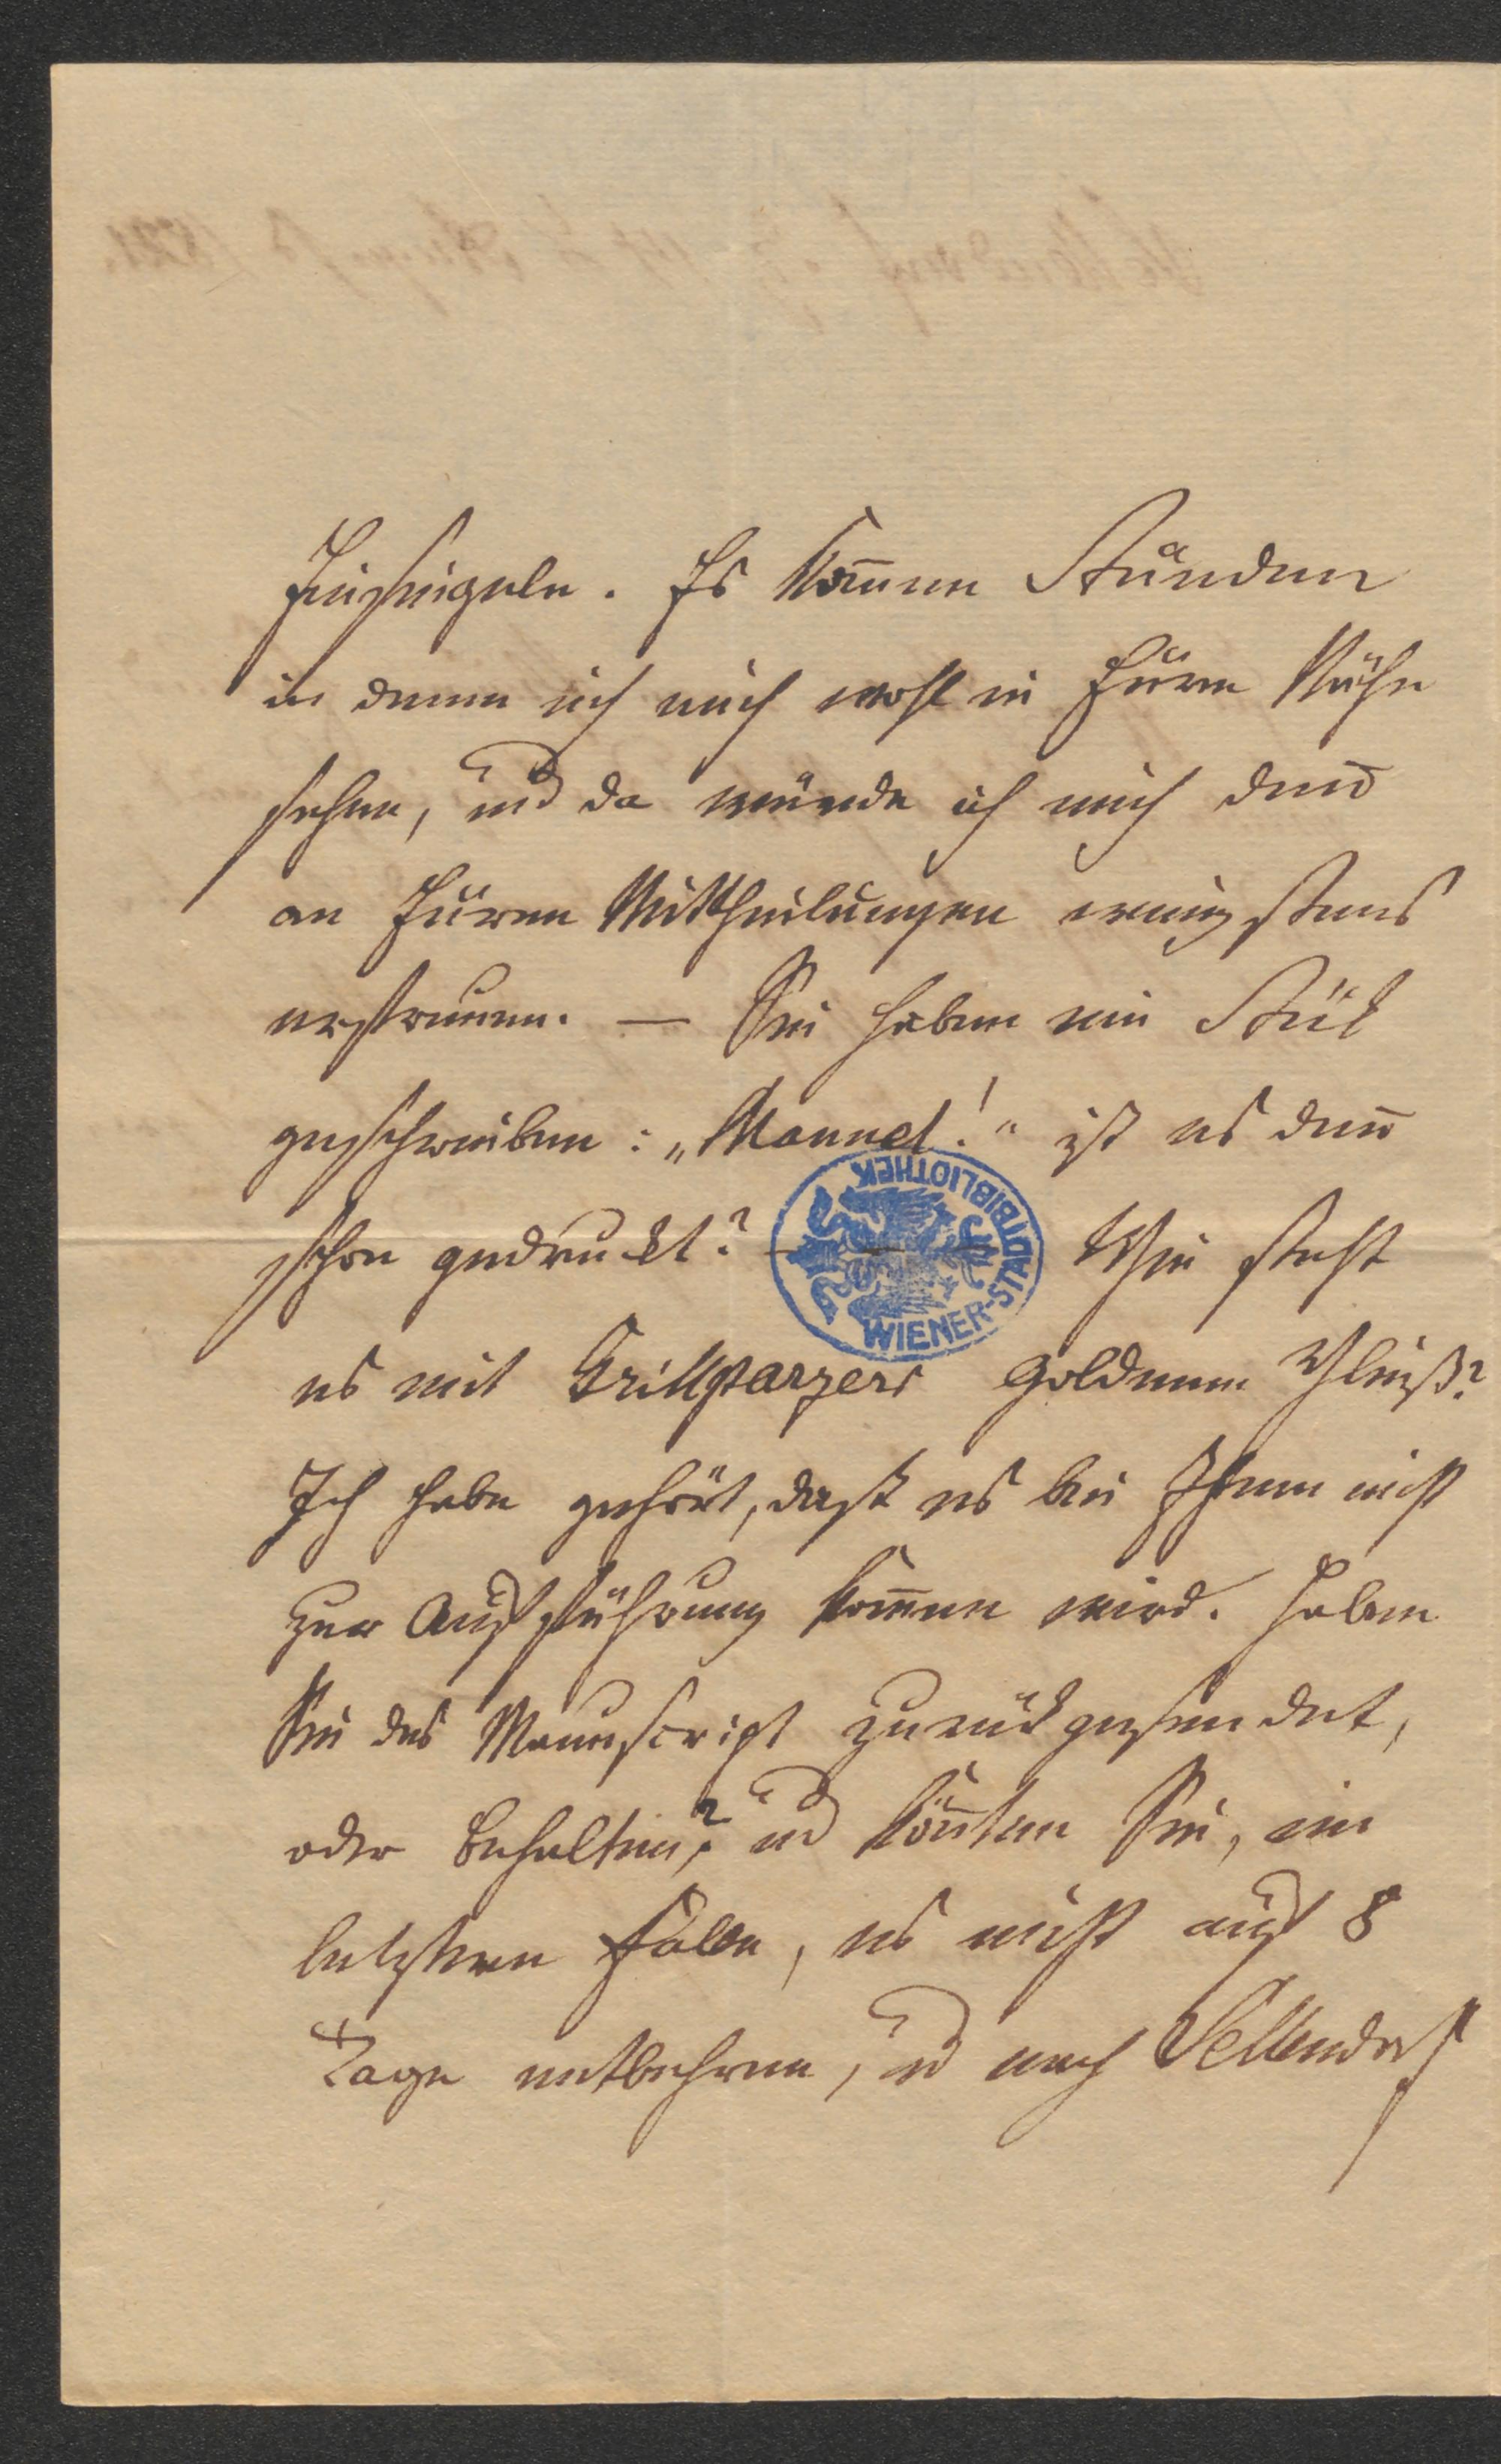 Einsiegeln. Es kom̅en Stunden
in denen ich mich wohl in Eüre Nähe
sehne, und da würde ich mich den̅
an Eüren Mittheilungen wenigstens
erfreuen. — Sie haben ein Stük
geschrieben: „Manuel!“ ist es den̅
schon gedruckt? — Wie steht
es mit Grillparzers Goldenem Vließ?
Ich habe gehört, dass es bei Ihnen nicht
zur Aufführung kom̅en wird. Haben
Sie das Manuscript zurükgesendet,
oder behalten? und kön̅ten Sie, im
letztern Falle, es nicht auf 8
Tage entbehren, und nach Hettendorf
WIENER-STADTBIBLIOTHEK